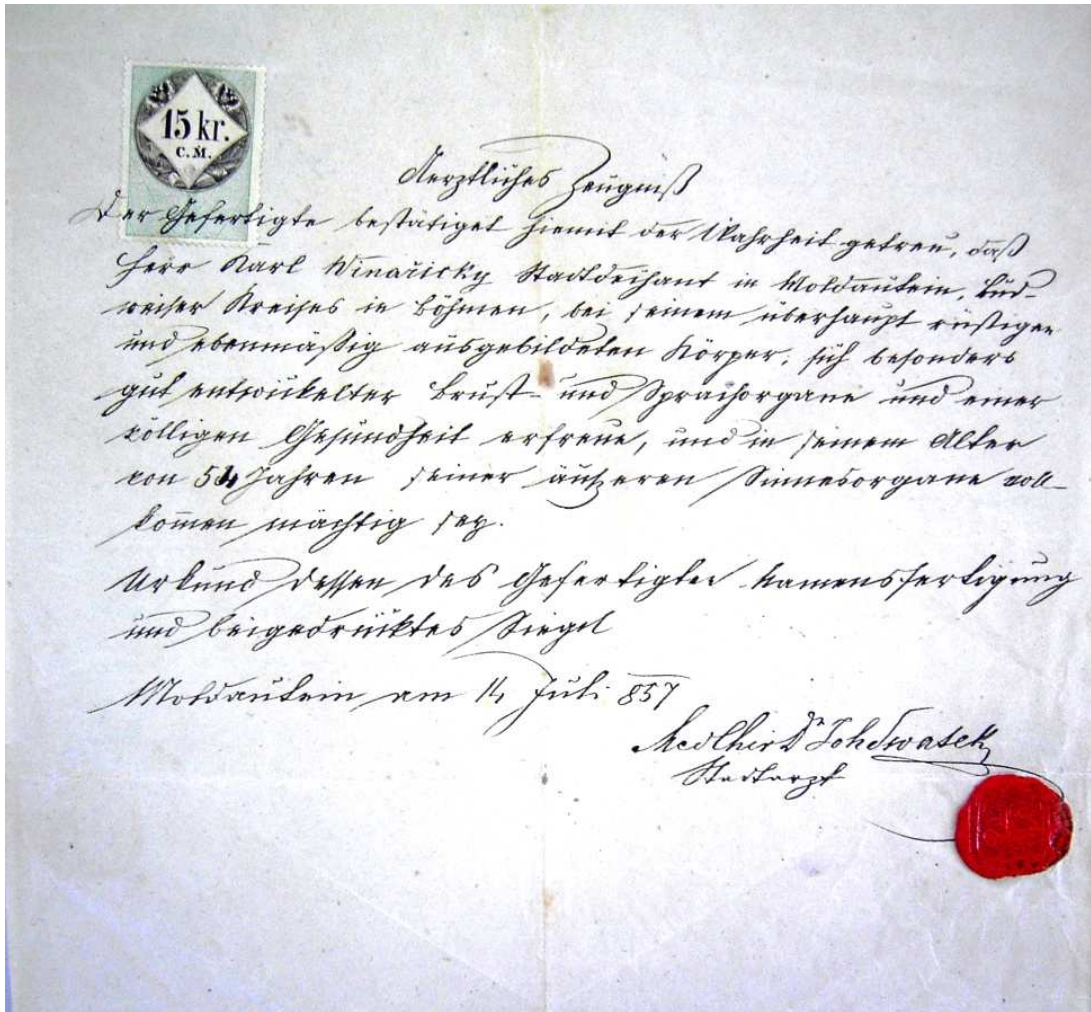 15 kr.
C. M.
Aerztliches Zeugniß
Der Gefertigte bestätiget hiemit der Wahrheit getreu, daß
Herr Karl Winařicky Stadtdechant in Moldautein, Bud-
weiser Kreises in Böhmen, bei seinem überhaupt rüstigen
und ebenmäßig ausgebildeten Körper, sich besonders
gut entwickelter Brust- und Sprachorgane und einer
völligen Gesundheit erfreue, und in seinem Alter
von 54 Jahren seiner äußeren Sinnesorgane voll-
kommen mächtig sey.
Urkund dessen des Gefertigten Namensfertigung
und beigedrücktes Siegel
Moldautein am 14 Juli 857
Med Chir Dr Joh Swatek
Stadtarzt